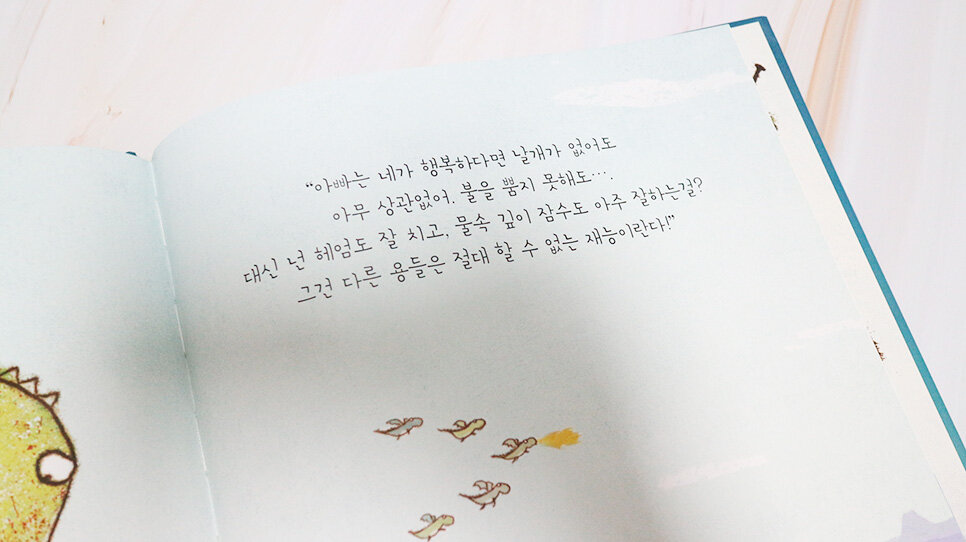 “아빠는 네가 행복하다면 날개가 없어도
아무 상관없어. 불을 뿜지 못해도….
대신 넌 헤엄도 잘 치고, 물속 깊이 잠수도 아주 잘하는걸?
그건 다른 용들은 절대 할 수 없는 재능이란다!”